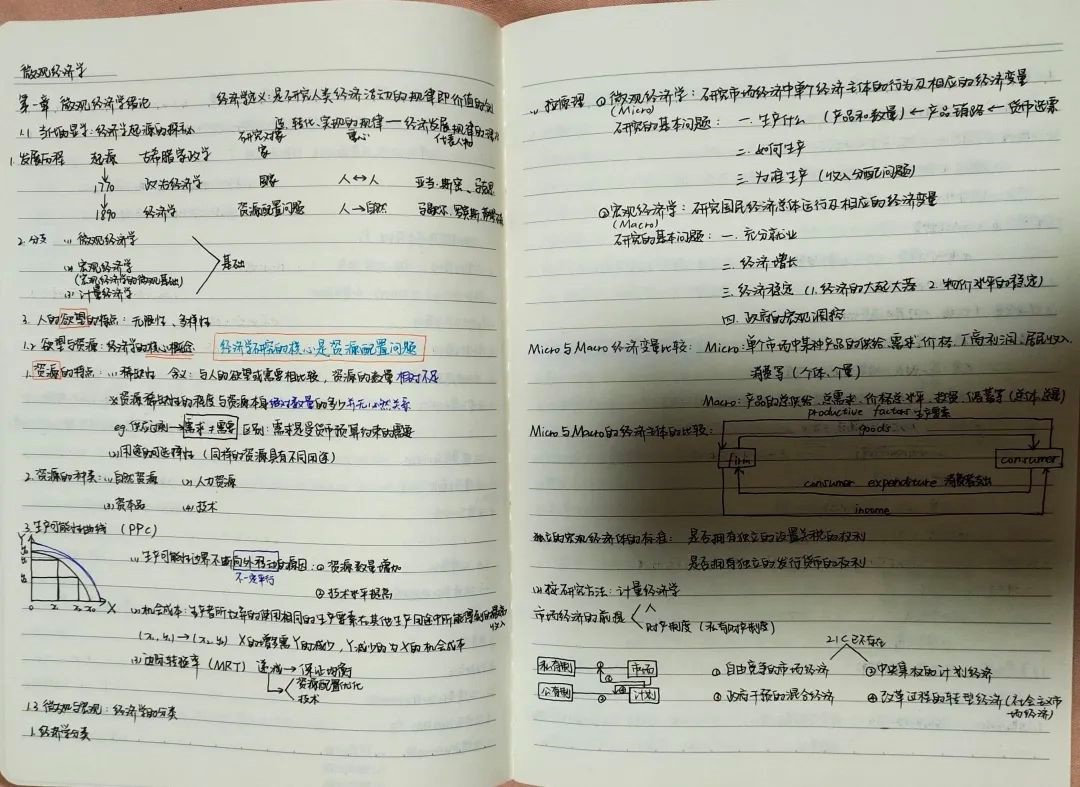 微观经济学
第一章 微观经济学绪论 经济学定义:是研究人类经济活动的规律即价值的创
造、转化、实现的规律——经济发展规律的理论
1.1 当代的显学:经济学起源的探秘
研究对象 重心 代表人物
1. 发展历程 起源 古希腊家政学 家
1770 政治经济学 国家 人↔人 亚当·斯密、马克思
1890 经济学 资源配置问题 人→自然 马歇尔、罗宾斯
2. 分支 (1) 微观经济学
(2) 宏观经济学 基础
(宏观经济学的微观基础)
(3) 计量经济学
3. 人的欲望的特点:无限性、多样性
1.2 欲望与资源:经济学的核心概念 经济学研究的核心是资源配置问题
1. 资源的特点:(1) 稀缺性 含义:与人的欲望或需要相比较,资源的数量相对不足
※资源稀缺性的程度与资源本身绝对数量的多少并无必然关系
eg. 供应过剩→需求≠需要 区别:需求是受货币预算约束的需要
(2) 用途的可选择性(同样的资源具有不同用途)
2. 资源的种类:(1) 自然资源 (2) 人力资源
(3) 资本品 (4) 技术
3. 生产可能性曲线 (PPC)
Y
(1) 生产可能性边界不断向外移动的原因:① 资源数量增加
不一定平行
② 技术水平提高
0 X₁ X₂ X
(2) 机会成本:生产者所放弃的使用相同的生产要素在其他生产用途中所能得到的最高
收入
(x₁, y₁)→(x₂, y₂) X的增多需Y的减少,Y减少的为X的机会成本
(3) 边际转换率 (MRT) 递减→保证均衡
资源配置优化
技术
1.3 微观与宏观:经济学的分类
1. 经济学分类
(1) 按原理 ① 微观经济学:研究市场经济中单个经济主体的行为及相应的经济变量
(Micro)
研究的基本问题: 一. 生产什么 (产品和数量)←产品销路←货币选票
二. 如何生产
三. 为谁生产(收入分配问题)
② 宏观经济学:研究国民经济总体运行及相应的经济变量
(Macro)
研究的基本问题: 一. 充分就业
二. 经济增长
三. 经济稳定 (1. 经济的大起大落 2. 物价水平的稳定)
四. 政府的宏观调控
Micro与Macro经济变量比较: Micro:单个市场中某种产品的供给、需求、价格、厂商利润、居民收入、
消费等(个体、个量)
Macro:产品的总供给、总需求、价格总水平、投资、储蓄等(总体、总量)
productive factors 生产要素
Micro与Macro的经济主体的比较: goods
firm consumer
consumer expenditure 消费者支出
income
独立的宏观经济体的标准: 是否拥有独立的设置关税的权利
是否拥有独立的发行货币的权利
(2) 按研究方法:计量经济学
市场经济的前提
财产制度(私有财产制度)
21C已不存在
私有制 ① 市场 ① 自由竞争的市场经济 ② 中央集权的计划经济
公有制 ② 计划 ③ 政府干预的混合经济 ④ 改革过程的转型经济(社会主义市
场经济)